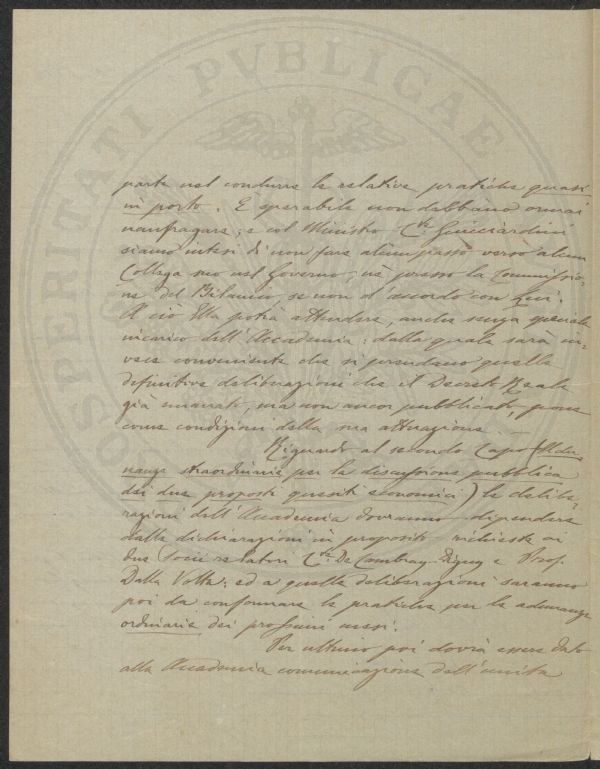 PROSPERITATI PVBLICAE
parte nel condurre le relative pratiche quasi
in porto. È sperabile non debbano omai
naufragare; e col Ministro Cte Guicciardini
siamo intesi di non fare alcun passo verso alcun
Collega suo nel Governo, nè presso la Commissio-
ne del Bilancio, se non d'accordo con Lui.
A ciò Ella potrà attendere, anche senza speciale
incarico dell'Accademia; dalla quale sarà in-
vece conveniente che si prendano quelle
definitive deliberazioni che il Decreto Reale
già emanato, ma non ancor pubblicato, pone
come condizioni della sua attuazione. —
Riguardo al secondo Capo (Adu-
nanze straordinarie per la discussione pubblica
dei due proposti quesiti economici) le delibe-
razioni dell'Accademia dovranno dipendere
dalle dichiarazioni in proposito richieste ai
due Socii relatori Cte De Cambray-Digny e Prof.
Dalla Volta; ed a quelle deliberazioni saranno
poi da conformare le pratiche per le adunanze
ordinarie dei prossimi mesi.
Per ultimo poi dovrà essere dato
alla Accademia comunicazione dell'unita